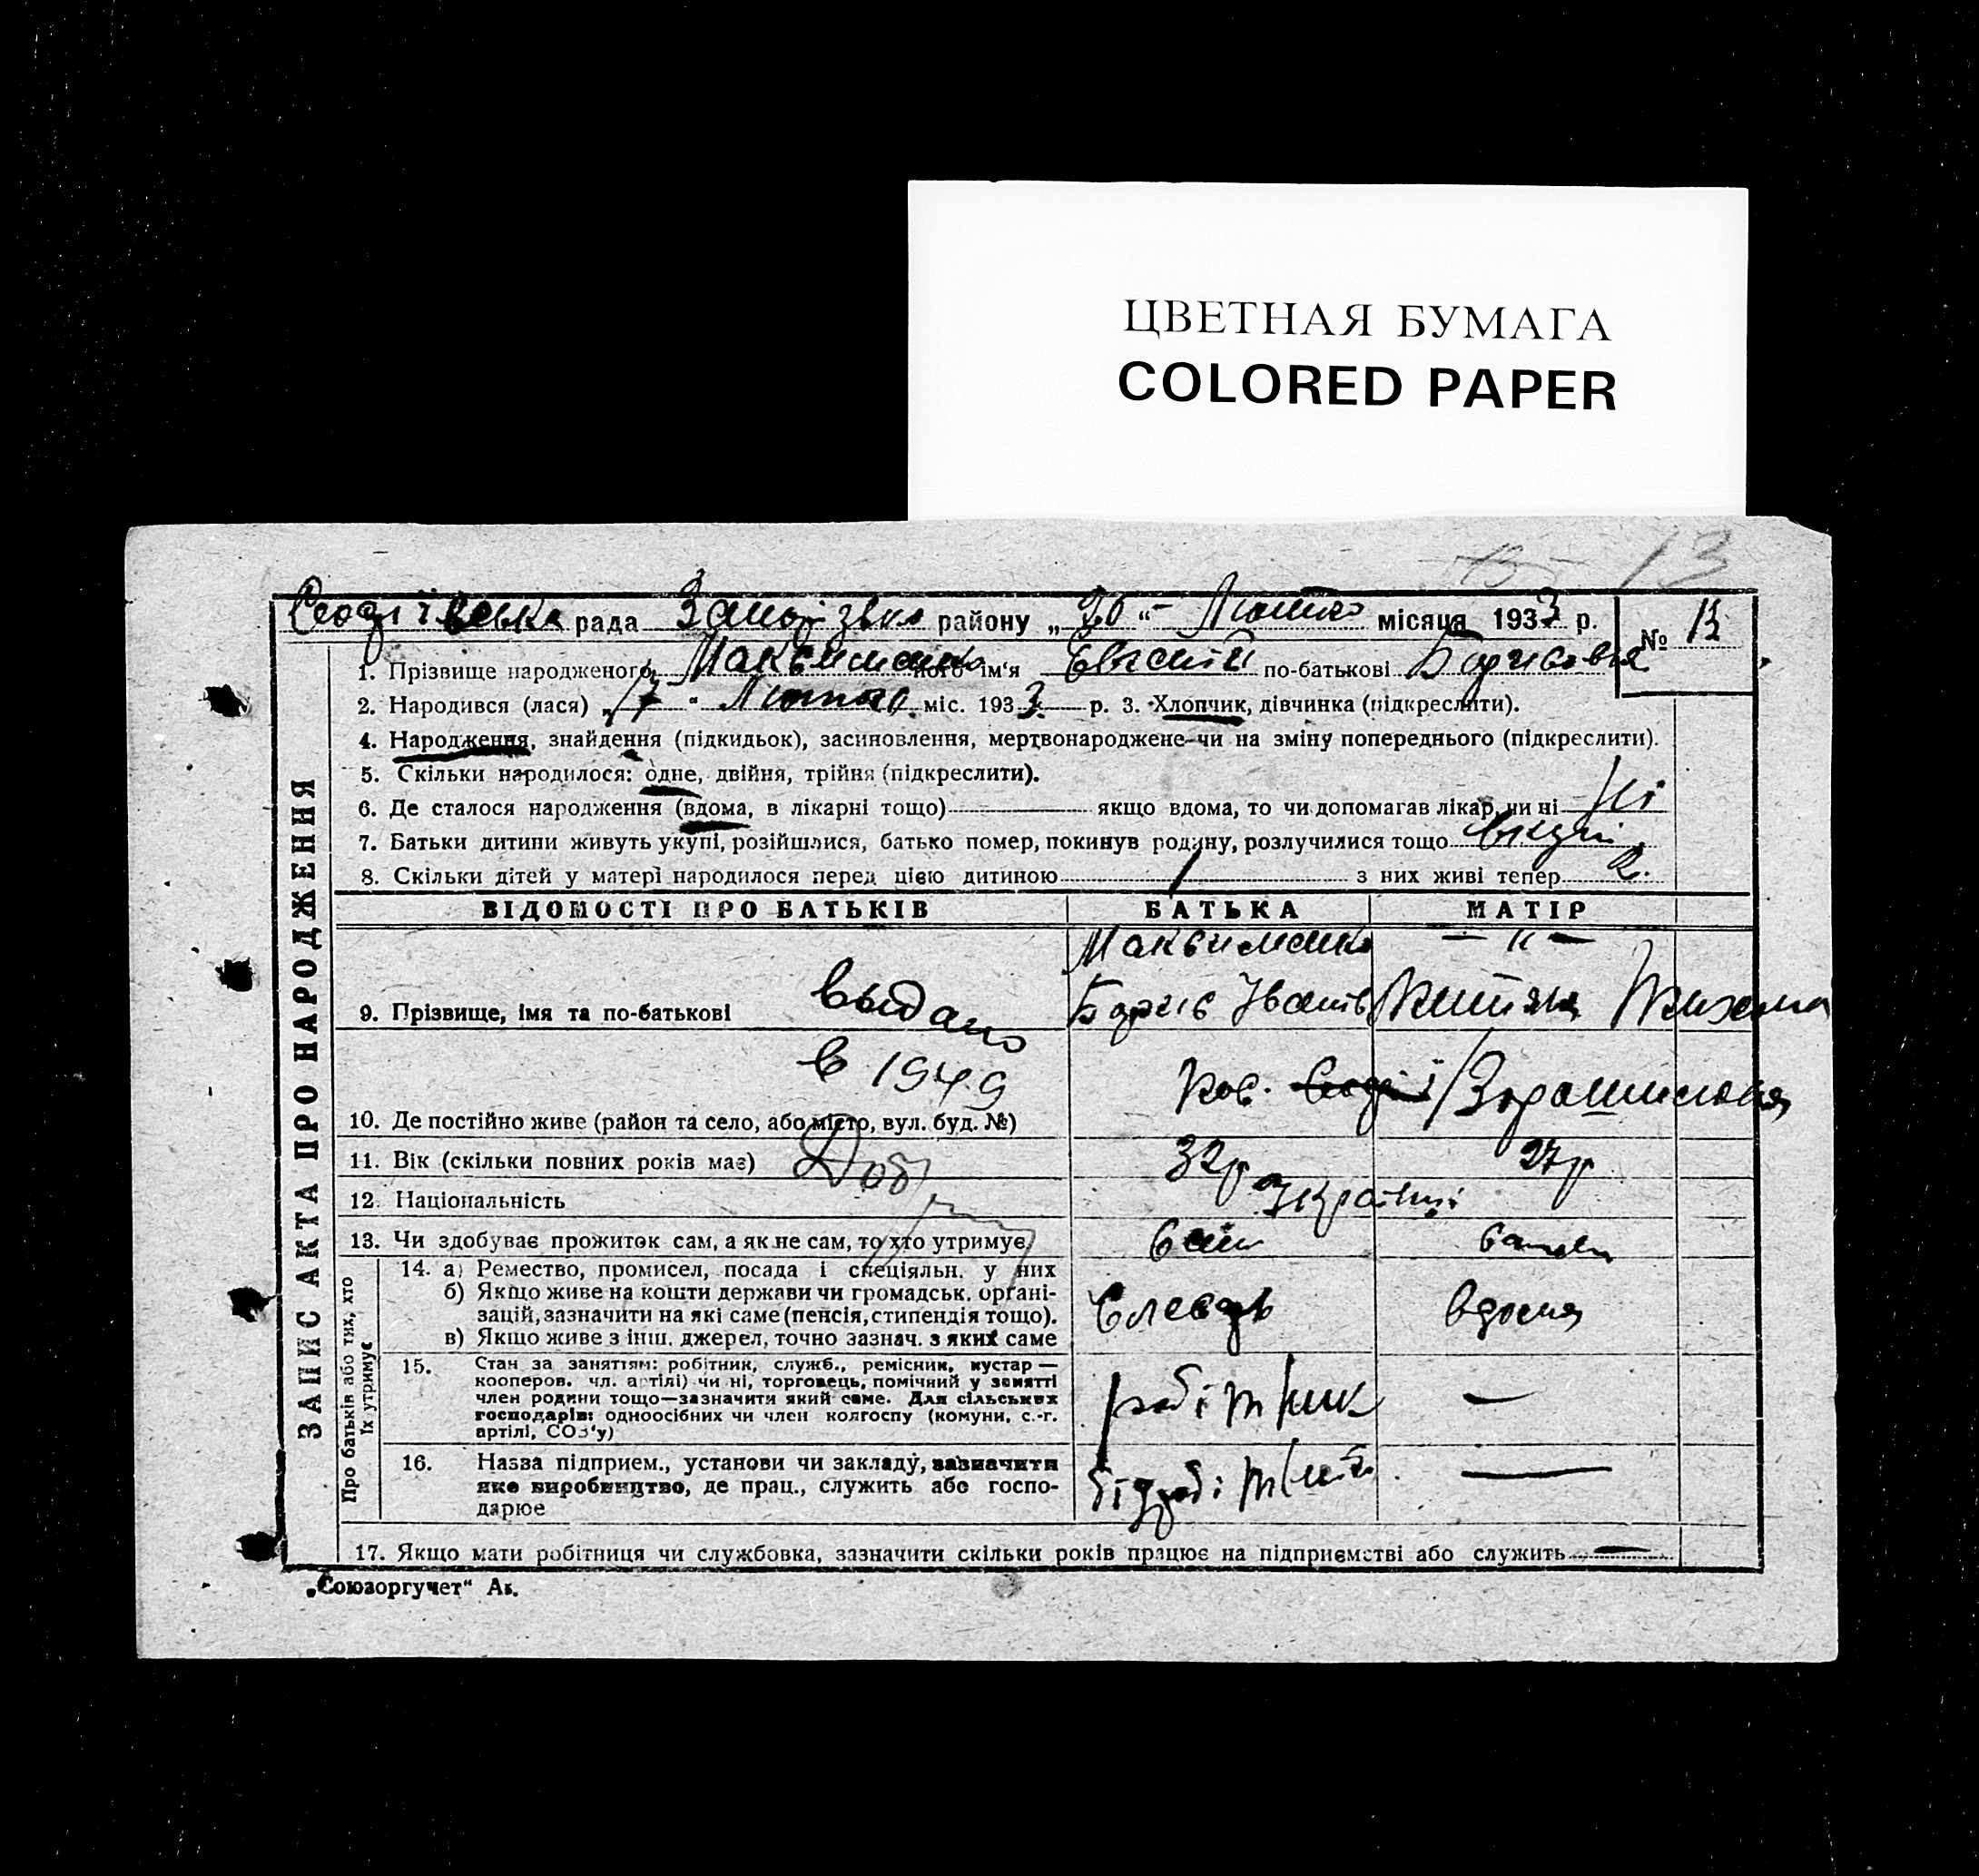 ЦВЕТНАЯ БУМАГА
COLORED PAPER
13
рада района „20“ Лютого місяця 1933 р. № 13
1. Прізвище народженого Максименко його ім'я Євгеній по-батькові Борисовия
2. Народився (лася) „17“ Лютого міс. 1933 р. 3. Хлопчик, дівчинка (підкреслити).
4. Народження, знайдення (підкидьок), засиновлення, мертвонароджене чи на зміну попереднього (підкреслити).
5. Скільки народилося: одне, двійня, трійня (підкреслити).
6. Де сталося народження (вдома, в лікарні тощо) якщо вдома, то чи допомагав лікар, чи ні Ні
7. Батьки дитини живуть укупі, розійшлися, батько помер, покинув родину, розлучилися тощо вкупі
8. Скільки дітей у матері народилося перед цією дитиною 1 з них живі тепер 2.
ЗАПИС АКТА ПРО НАРОДЖЕННЯ
ВІДОМОСТІ ПРО БАТЬКІВ БАТЬКА МАТІР
Максименко — " —
9. Прізвище, імя та по-батькові выдано Борис Іванів
в 1949
10. Де постійно живе (район та село, або місто, вул. буд. №)
11. Вік (скільки повних років має) 32р 27р
12. Національність Українці
13. Чи здобуває прожиток сам, а як не сам, то хто утримує сам
Про батьків або тих, хто їх утримує
14. а) Ремество, промисел, посада і спеціяльн. у них
б) Якщо живе на кошти держави чи громадськ. органі-
зацій, зазначити на які саме (пенсія, стипендія тощо).
в) Якщо живе з інш. джерел, точно зазнач. з яких саме
Слесарь вдома
15. Стан за заняттям: робітник, служб., ремісник, кустар —
кооперов. чл. артілі) чи ні, торговець, помічний у занятті
член родини тощо—зазначити який саме. Для сільських
господарів: одноосібних чи член колгоспу (комуни, с.-г.
артілі, СОЗ'у)
робітник —
16. Назва підприєм., установи чи закладу, зазначити
яке виробництво, де прац., служить або госпо-
дарює
—
17. Якщо мати робітниця чи службовка, зазначити скільки років працює на підприємстві або служить —
„Союзоргучет“ Ак.